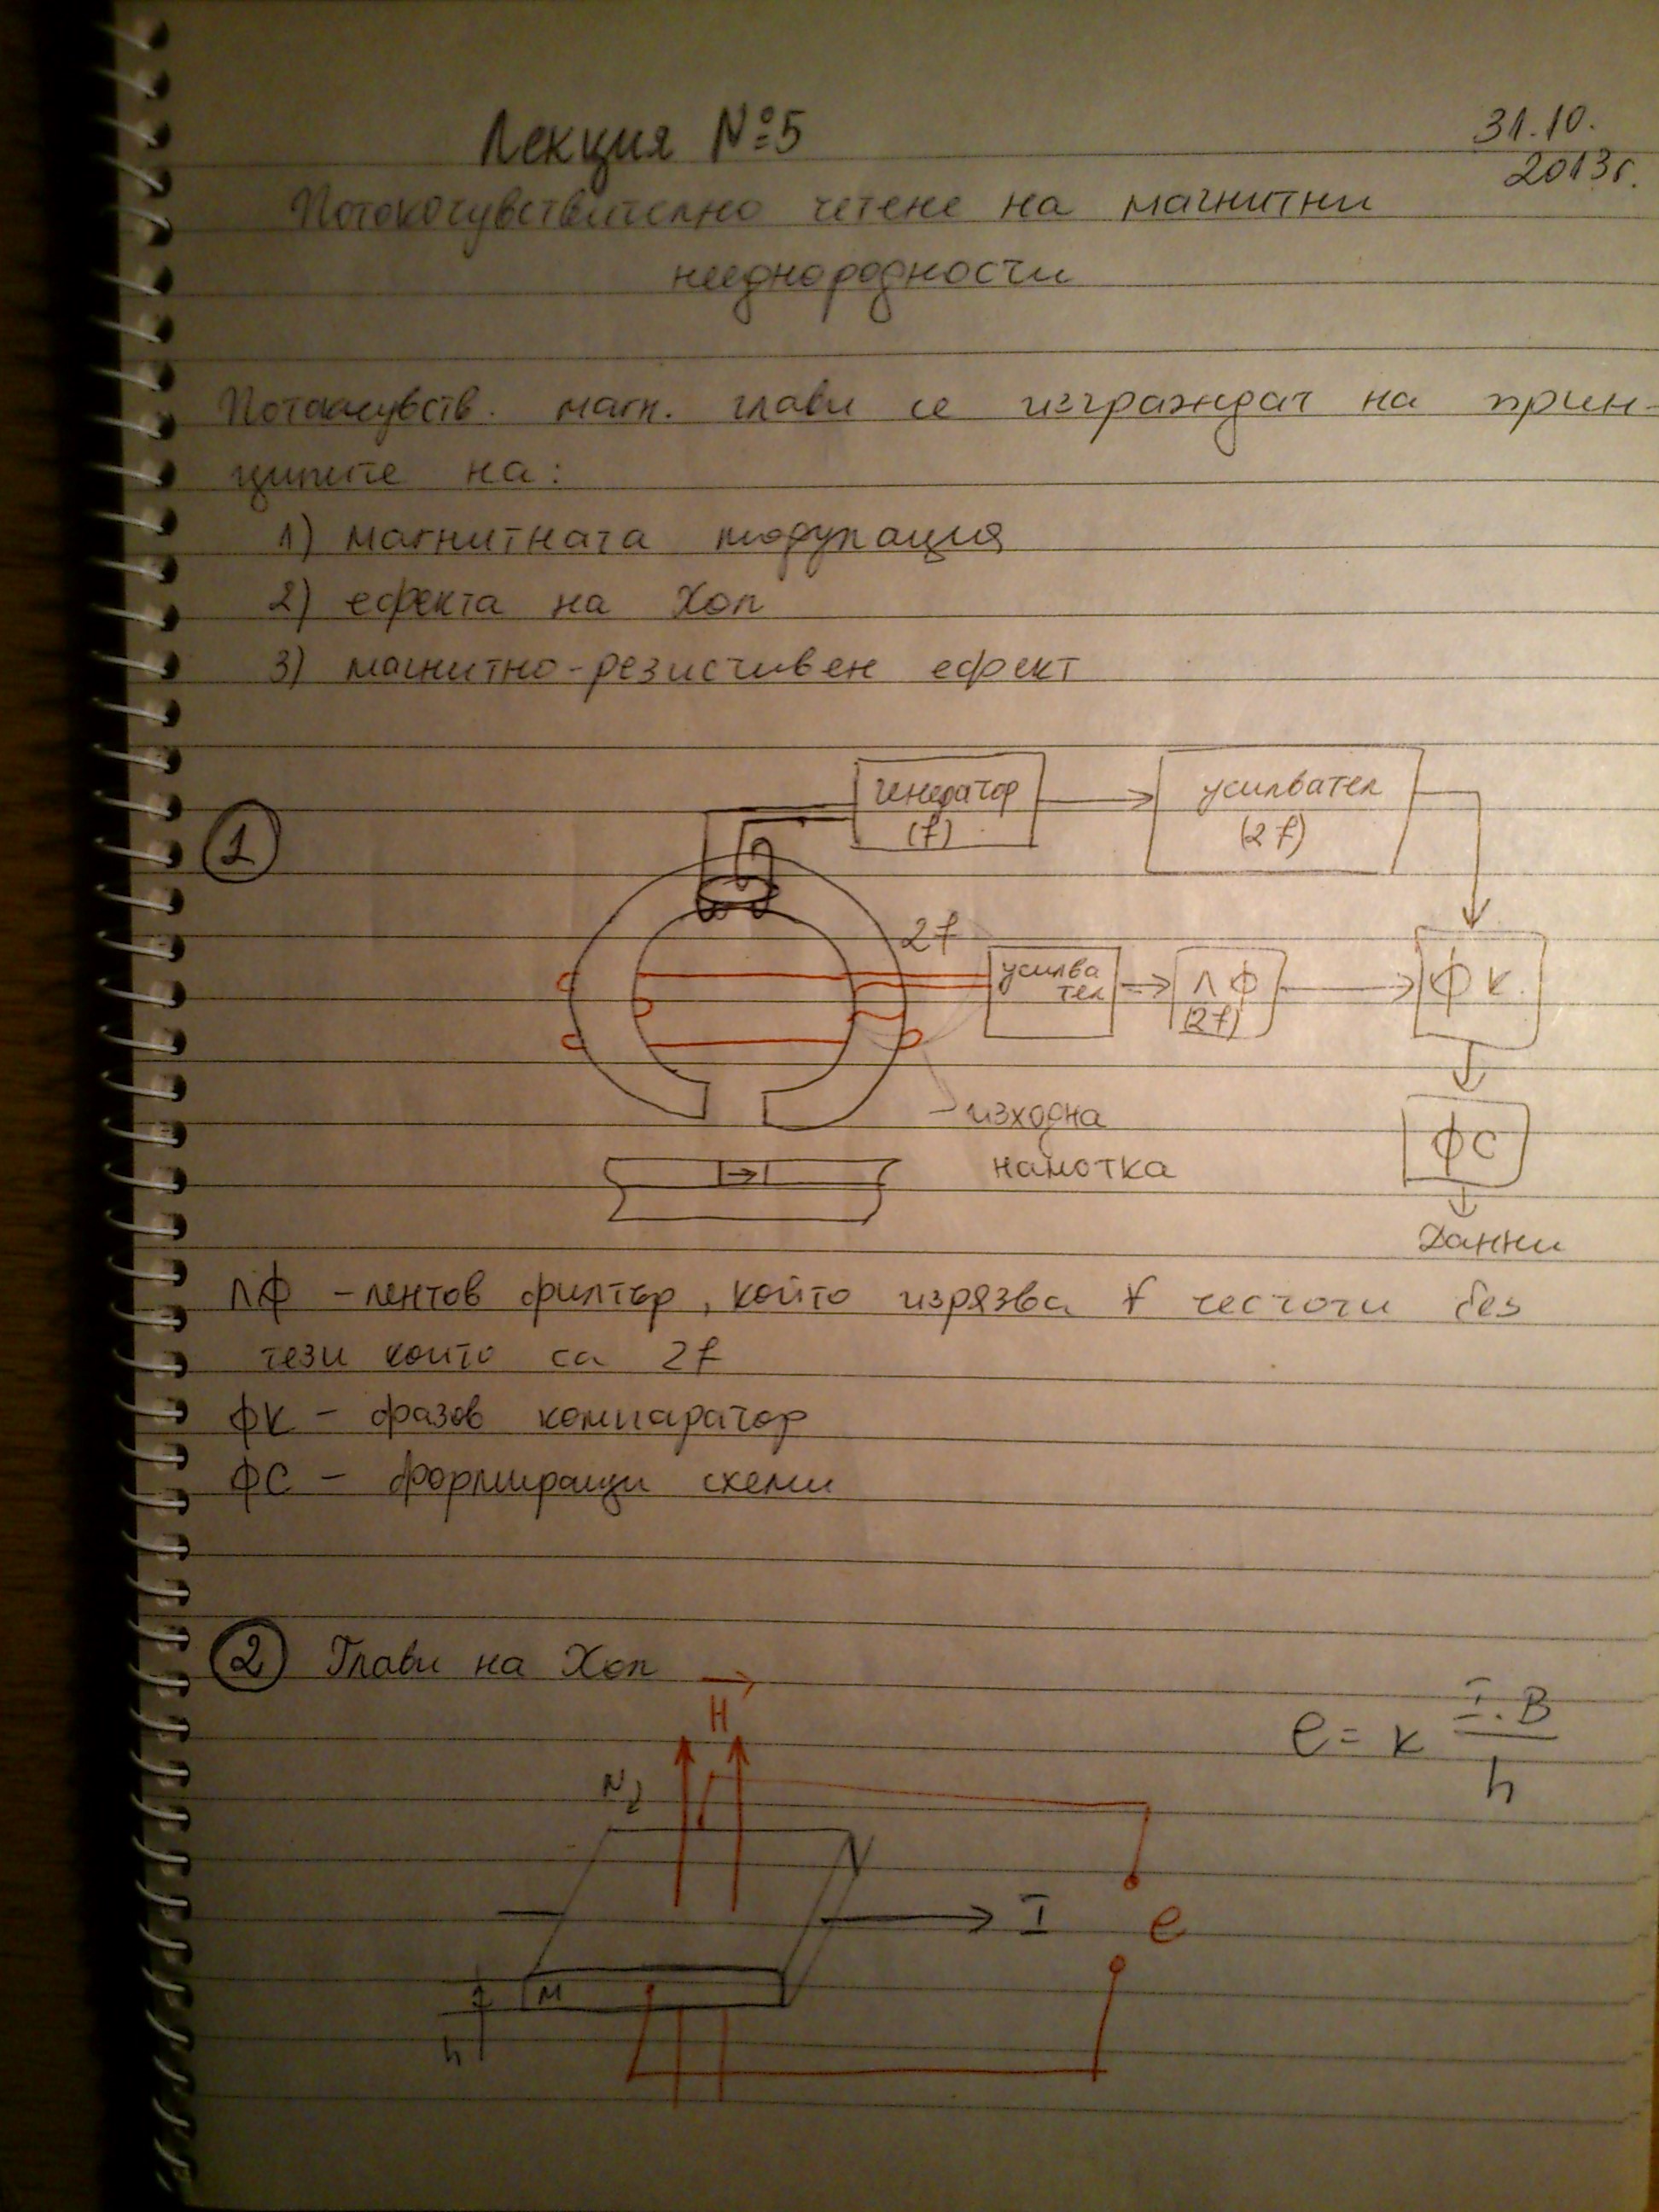 Лекция №5
31.10.
2013г.
Потокочувствително четене на магнитни
нееднородности
Потокочувств. магн. глави се изграждат на прин-
ципите на:
1) магнитната модулация
2) ефекта на Хол
3) магнитно-резистивен ефект
1
генератор
(f)
усилвател
(2f)
2f
усилва
тел
ЛФ
(2f)
ФК
изходна
намотка
ФС
Данни
ЛФ – лентов филтър, който изрязва ∀ честоти без
тези които са 2f
ФК – фазов компаратор
ФС – формиращи схеми
2 Глави на Хол
H
e = k I.B
h
N
I
e
M
h